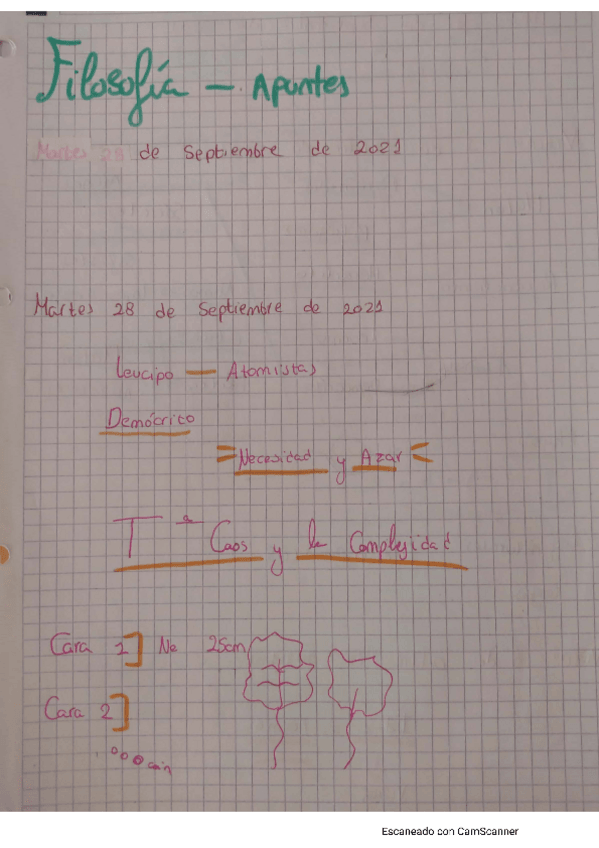 Filosofía - Apuntes
Martes 28 de Septiembre de 2021
Martes 28 de Septiembre de 2021
Leucipo — Atomistas
Demócrito
=Necesidad y Azar=
T Caos y la Complejidad
Cara 1] Ne 25cm
Cara 2]
Escaneado con CamScanner